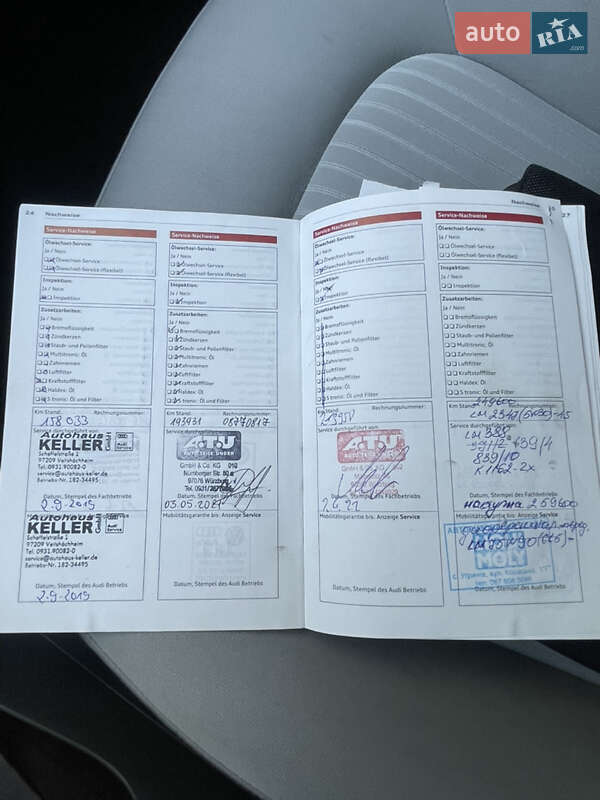 auto RIA .com
24 Nachweise
Service-Nachweise
Ölwechsel-Service:
Ja / Nein
Ölwechsel-Service
Ölwechsel-Service (flexibel)
Inspektion:
Ja / Nein
Inspektion
Zusatzarbeiten:
Ja / Nein
Bremsflüssigkeit
Zündkerzen
Staub- und Pollenfilter
Multitronic: Öl
Zahnriemen
Luftfilter
Kraftstofffilter
Haldex: Öl
S tronic: Öl und Filter
Km Stand: Rechnungsnummer:
158 033
Service durchgeführt von:
Autohaus
KELLER GmbH
Audi Service
Schaffelstraße 1
97209 Veitshöchheim
Tel. 0931.90082-0
service@autohaus-keller.de
Betriebs-Nr. 182-34495
Datum, Stempel des Fachbetriebs
2.9.2019
Autohaus
KELLER GmbH
Audi Service
Schaffelstraße 1
97209 Veitshöchheim
Tel. 0931.90082-0
service@autohaus-keller.de
Betriebs-Nr. 182-34495
Datum, Stempel des Audi Betriebs
2.9.2019
Service-Nachweise
Ölwechsel-Service:
Ja / Nein
Ölwechsel-Service
Ölwechsel-Service (flexibel)
Inspektion:
Ja / Nein
Inspektion
Zusatzarbeiten:
Ja / Nein
Bremsflüssigkeit
Zündkerzen
Staub- und Pollenfilter
Multitronic: Öl
Zahnriemen
Luftfilter
Kraftstofffilter
Haldex: Öl
S tronic: Öl und Filter
Km Stand: Rechnungsnummer:
193931 08770817
Service durchgeführt von:
A.T.U
AUTO TEILE UNGER
GmbH & Co. KG 010
Nürnberger Str.
97076 Würzburg
Tel. 0931/
Datum, Stempel des Fachbetriebs
03.05.2021
Mobilitätsgarantie bis: Anzeige Service
Datum, Stempel des Audi Betriebs
Nachweise
27
Service-Nachweise
Ölwechsel-Service:
Ja / Nein
Ölwechsel-Service
Ölwechsel-Service (flexibel)
Inspektion:
Ja / Nein
Inspektion
Zusatzarbeiten:
Ja / Nein
Bremsflüssigkeit
Zündkerzen
Staub- und Pollenfilter
Multitronic: Öl
Zahnriemen
Luftfilter
Kraftstofffilter
Haldex: Öl
S tronic: Öl und Filter
Km Stand: Rechnungsnummer:
Service durchgeführt von:
A.T.U
AUTO TEILE UNGER
GmbH &
Datum, Stempel des Fachbetriebs
Mobilitätsgarantie bis: Anzeige Service
Datum, Stempel des Audi Betriebs
Service-Nachweise
Ölwechsel-Service:
Ja / Nein
Ölwechsel-Service
Ölwechsel-Service (flexibel)
Inspektion:
Ja / Nein
Inspektion
Zusatzarbeiten:
Ja / Nein
Bremsflüssigkeit
Zündkerzen
Staub- und Pollenfilter
Multitronic: Öl
Zahnriemen
Luftfilter
Kraftstofffilter
Haldex: Öl
S tronic: Öl und Filter
249600
Km Stand:
Service durchgeführt von:
939/10
K1162-2x
Datum, Stempel des Fachbetriebs
259600
Mobilitätsgarantie bis: Anzeige Service
MOLY
Datum, Stempel des Audi Betriebs